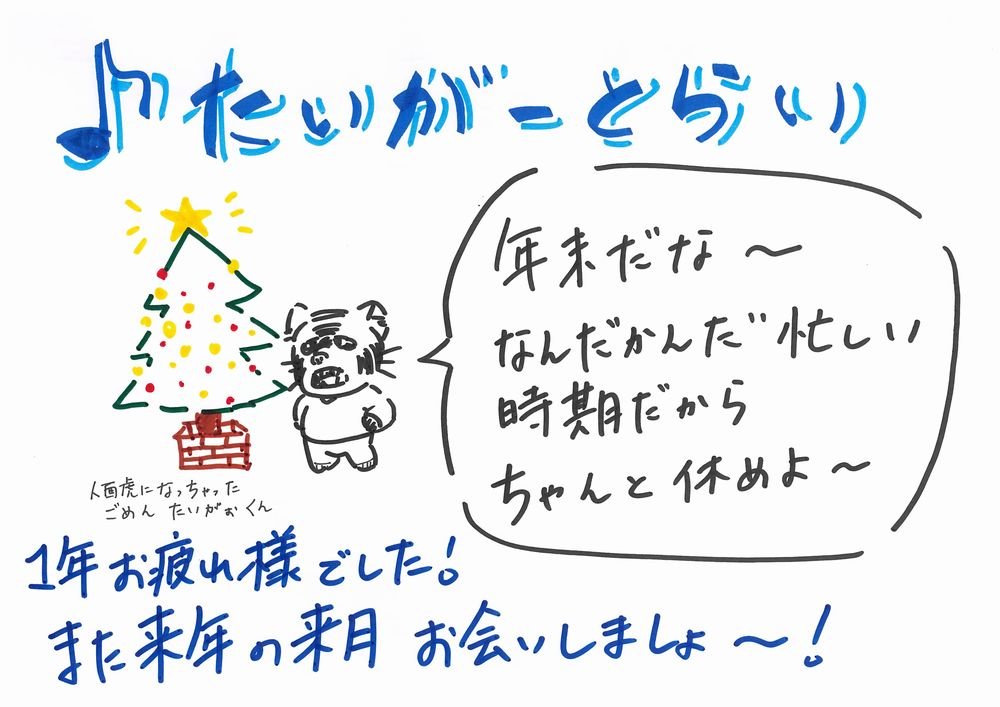 ♪たいがーとらい
年末だな〜
なんだかんだ忙しい
時期だから
ちゃんと休めよ〜
人面虎になっちゃった
ごめん たいがぁくん
1年お疲れ様でした!
また来年の来月 お会いしましょ〜!